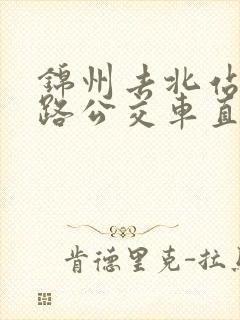 錦州去北
路公交車直
肯德里克-拉